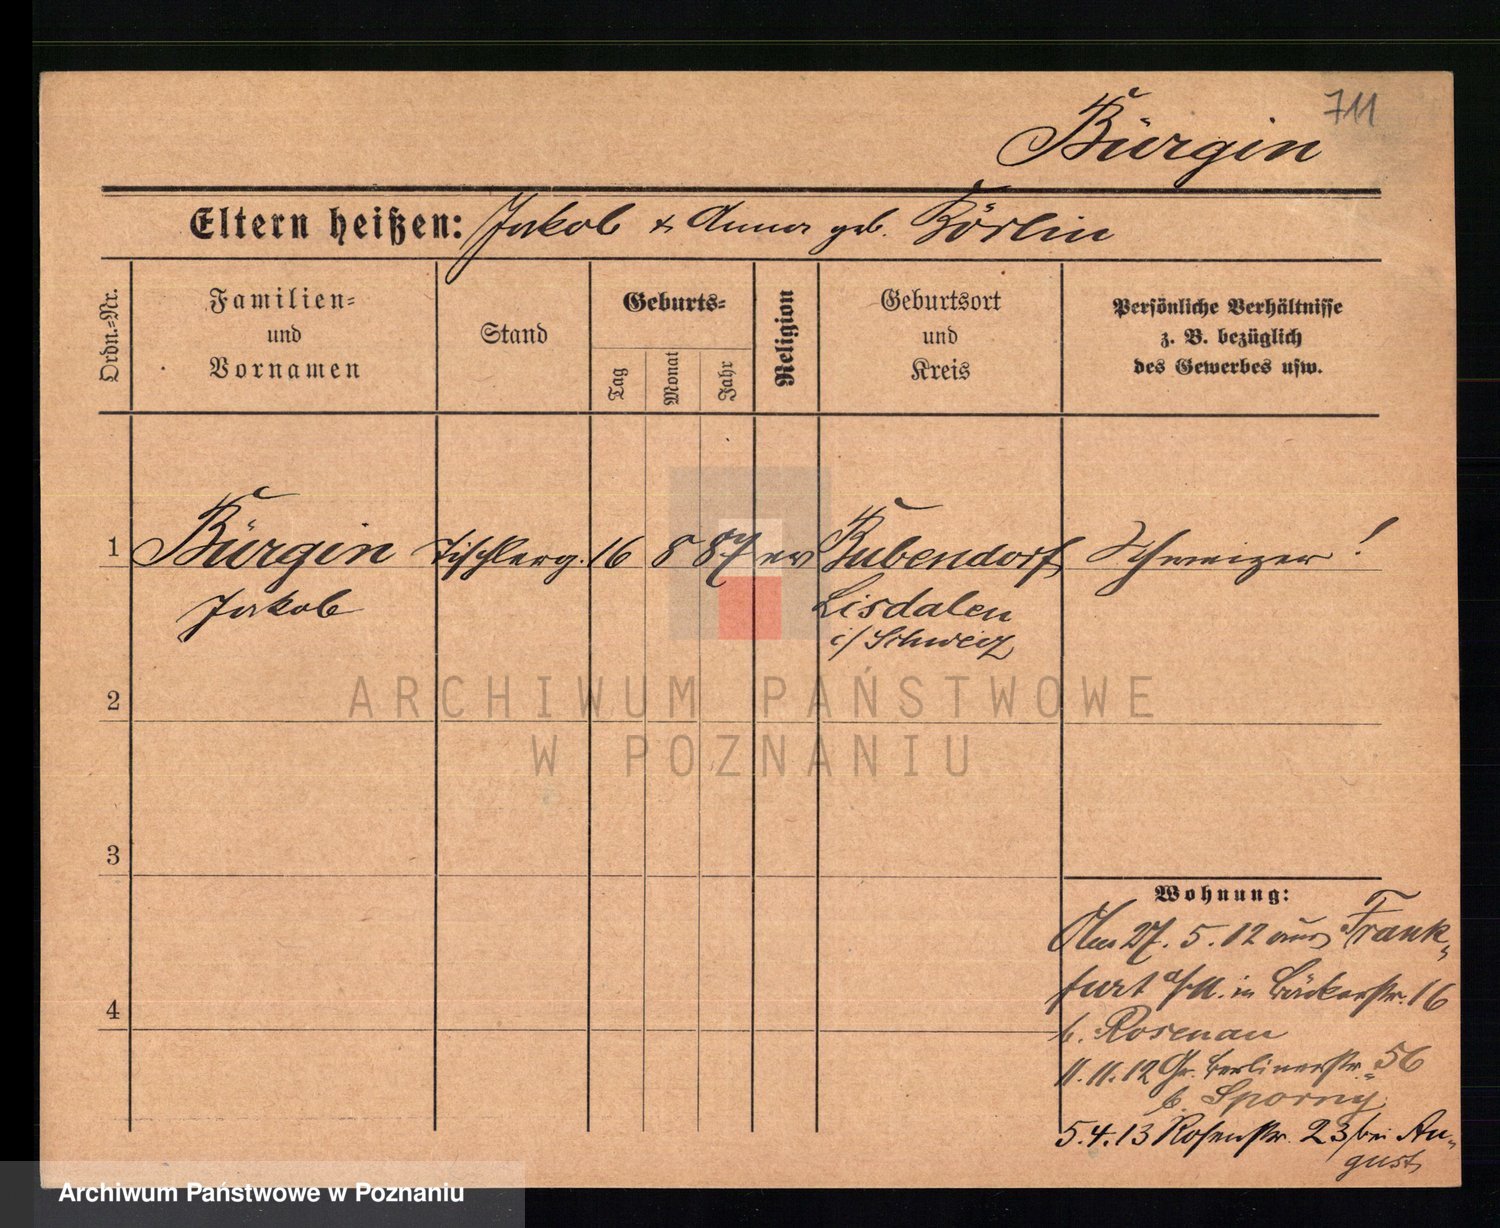 711
Bürgin
Eltern heißen: Jakob & Anna geb. Börlin
Ordn.=Nr.
Familien=
und
Vornamen
Stand
Geburts=
Tag
Monat
Jahr
Religion
Geburtsort
und
Kreis
Persönliche Verhältnisse
z. B. bezüglich
des Gewerbes usw.
1 Bürgin Tischlerg. 16 8 87 ev Bubendorf Schweizer!
Jakob Lisdalen
i/ Schweiz
2
ARCHIWUM PAŃSTWOWE
W POZNANIU
3
Wohnung:
27. 5. 12 aus Frank-
furt a/M. in Bäckerstr. 16
4
b. Rosenau
11.11.12 Gr. Berlinerstr. 56
b. Sporny
5.4.13 Rosenstr. 23 bei Au-
gust
Archiwum Państwowe w Poznaniu